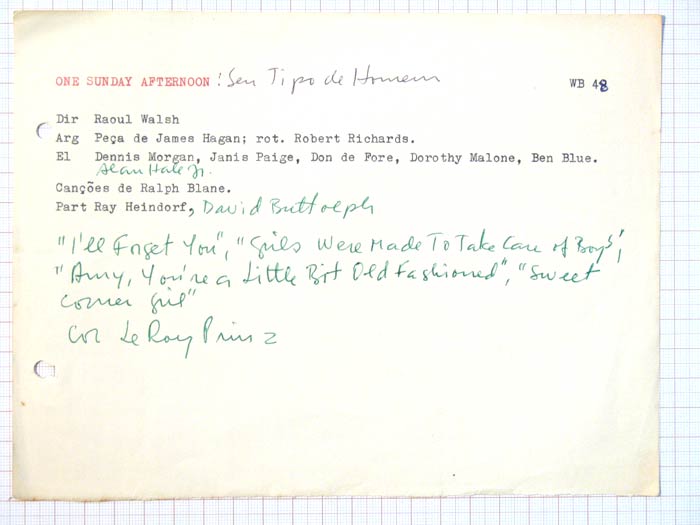 ONE SUNDAY AFTERNOON : Seu Tipo de Homem WB 48
Dir Raoul Walsh
Arg Peça de James Hagan; rot. Robert Richards.
El Dennis Morgan, Janis Paige, Don de Fore, Dorothy Malone, Ben Blue.
Alan Hale Jr.
Canções de Ralph Blane.
Part Ray Heindorf, David Buttolph
"I'll Forget You", "Girls Were Made To Take Care of Boys",
"Amy, You're a Little Bit Old Fashioned", "Sweet
Corner Girl"
Cor LeRoy Prinz